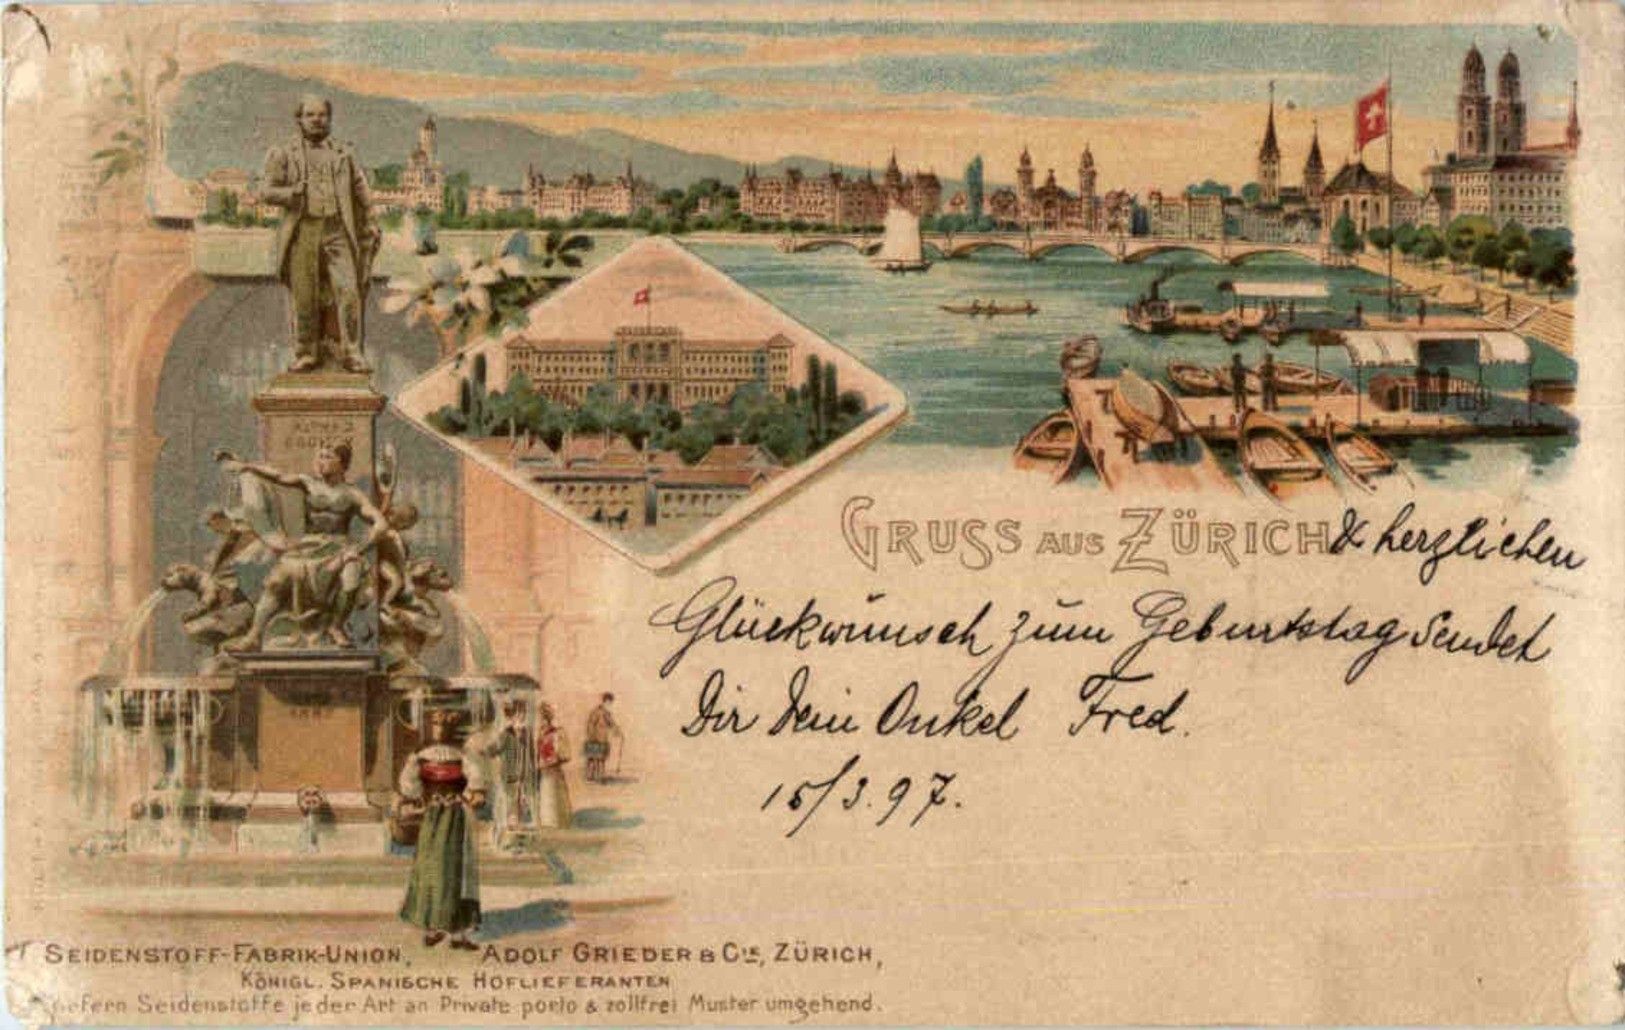 GRUSS AUS ZÜRICH & herzlichen
Glückwünsch zum Geburtstag sendet
Dir Dein Onkel Fred.
15/3.97.
SEIDENSTOFF-FABRIK-UNION, ADOLF GRIEDER & CIE, ZÜRICH,
KÖNIGL. SPANISCHE HOFLIEFERANTEN
liefern Seidenstoffe jeder Art an Private porto & zollfrei Muster umgehend.